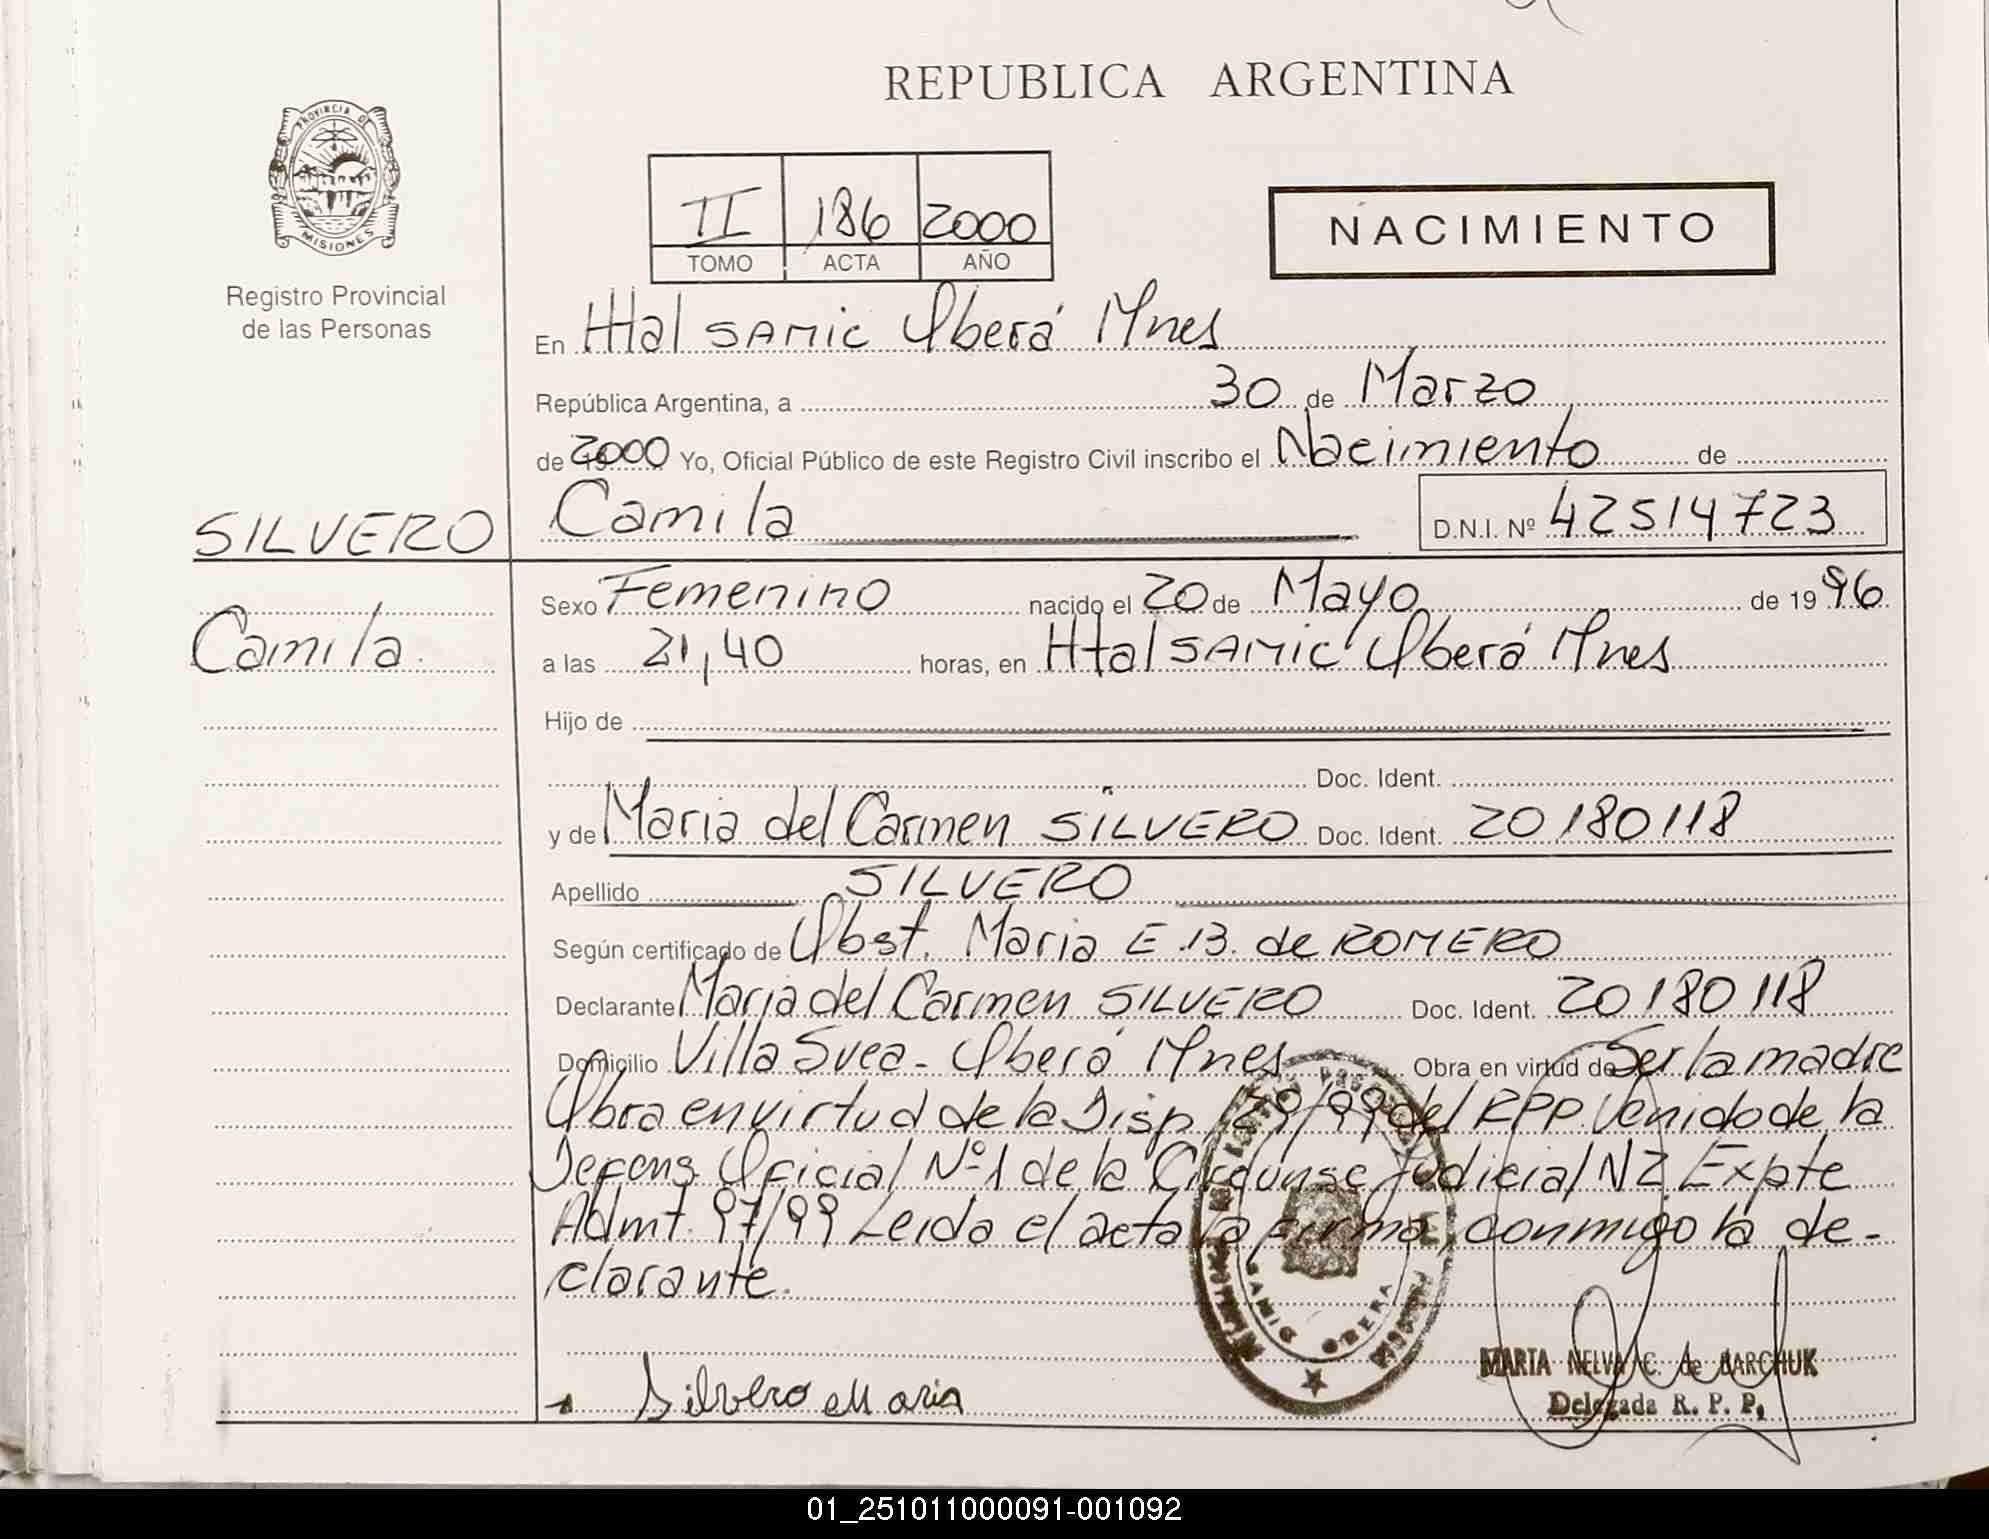 REPUBLICA ARGENTINA
PROVINCIA DE
MISIONES
Registro Provincial
de las Personas
II 186 2000
TOMO ACTA AÑO
NACIMIENTO
En Htal SAMIC Oberá Mnes
República Argentina, a 30 de Marzo
de 2000 Yo, Oficial Público de este Registro Civil inscribo el Nacimiento de
SILVERO Camila D.N.I. Nº 42514723
Sexo Femenino nacido el 20 de Mayo de 1996
Camila a las 21,40 horas, en Htal SAMIC Oberá Mnes
Hijo de
Doc. Ident.
y de Maria del Carmen SILVERO Doc. Ident. 20180118
Apellido SILVERO
Según certificado de Obst. Maria E.B. de ROMERO
Declarante Maria del Carmen SILVERO Doc. Ident. 20180118
Domicilio Villa Svea - Oberá Mnes Obra en virtud de Ser la madre
Obra en virtud de la Disp 29/99 del RPP Venido de la
Defens Oficial Nº 1 de la Circunsc Judicial N2 Expte
Admt. 97/99 Leida el acta la firma conmigo la de-
clarante.
SAMIC OBERA
Silvero Maria
MARTA NELVA C. de BARCHUK
Delegada R. P. P.
01_251011000091-001092